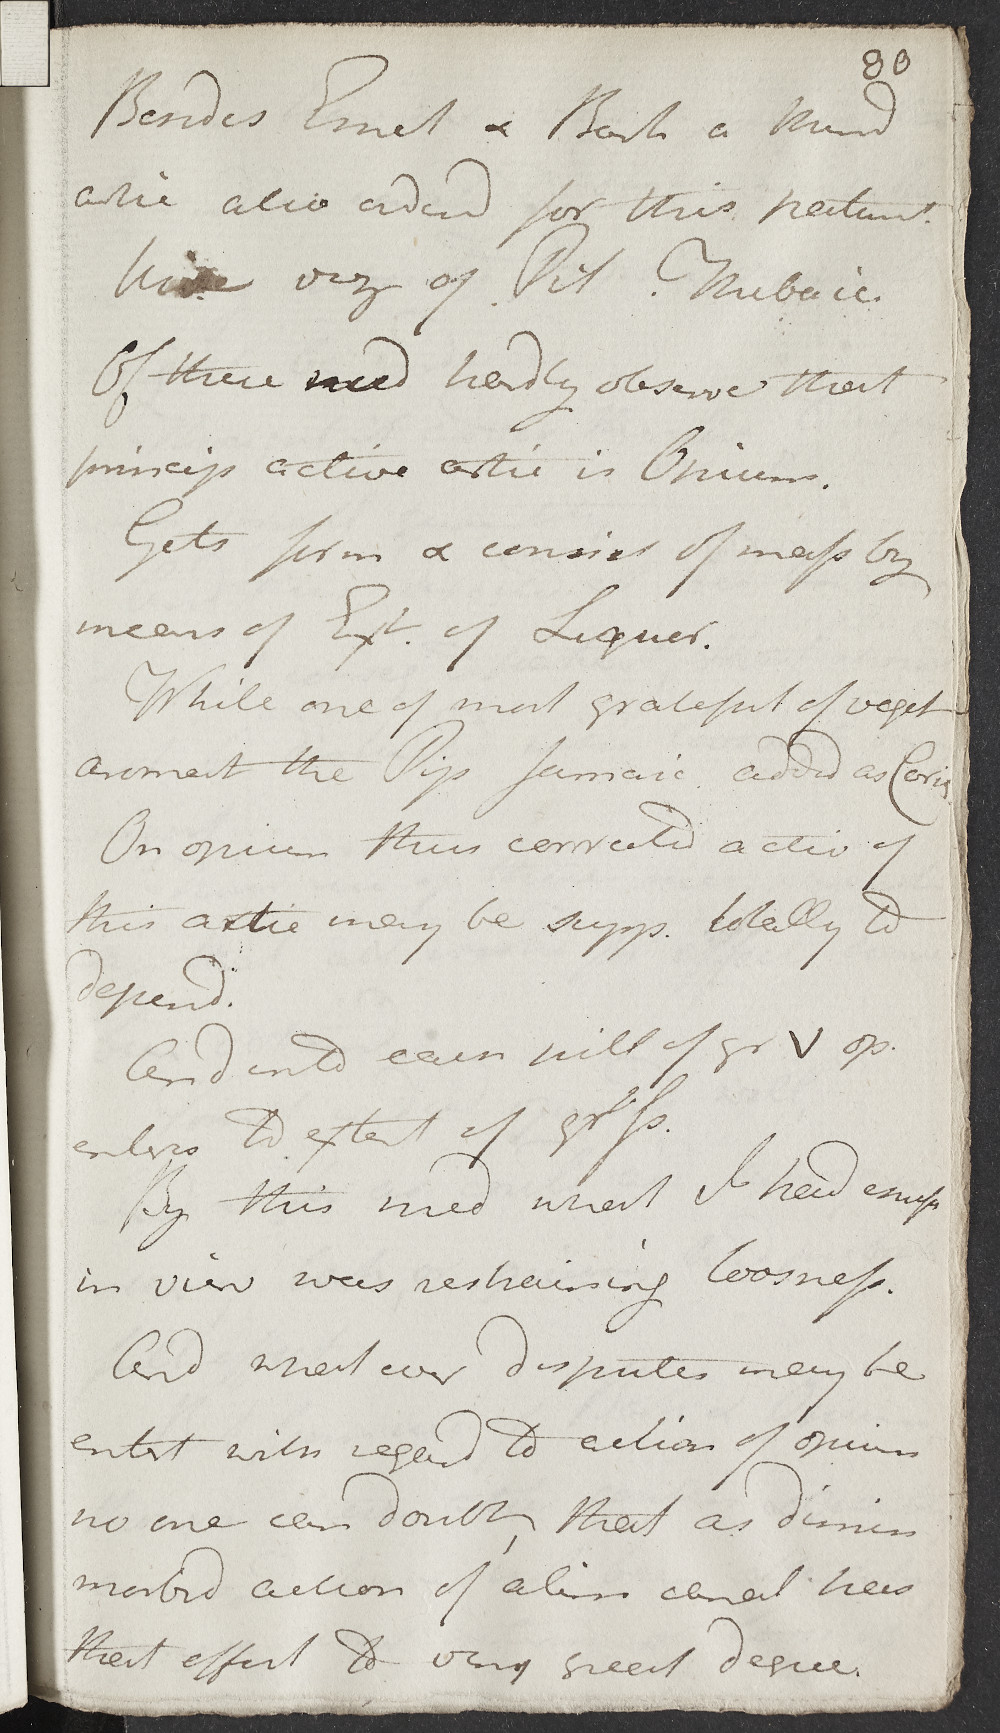 80
Besides Emet & Bark a third
artic also ordered for this patient.
have viz of Pil. Thebaic.
Of these need hardly observe that
princip active artic is Opium.
Gets form & consist of mass by
means of Ext. of Liquor.
While one of most grateful of veget
aromat the Pip Jamaic added as Corig
On opium thus corrected activ of
this artic may be supp. totally to
depend.
And into each pill of gr V op.
enters to extent of gr ss.
By this med what I had
in view was restraining loosness.
And what ever disputes may be
entert with regard to action of opium
no one can doubt, that as dimin
morbid action of alim canal has
that effect to very great degree.